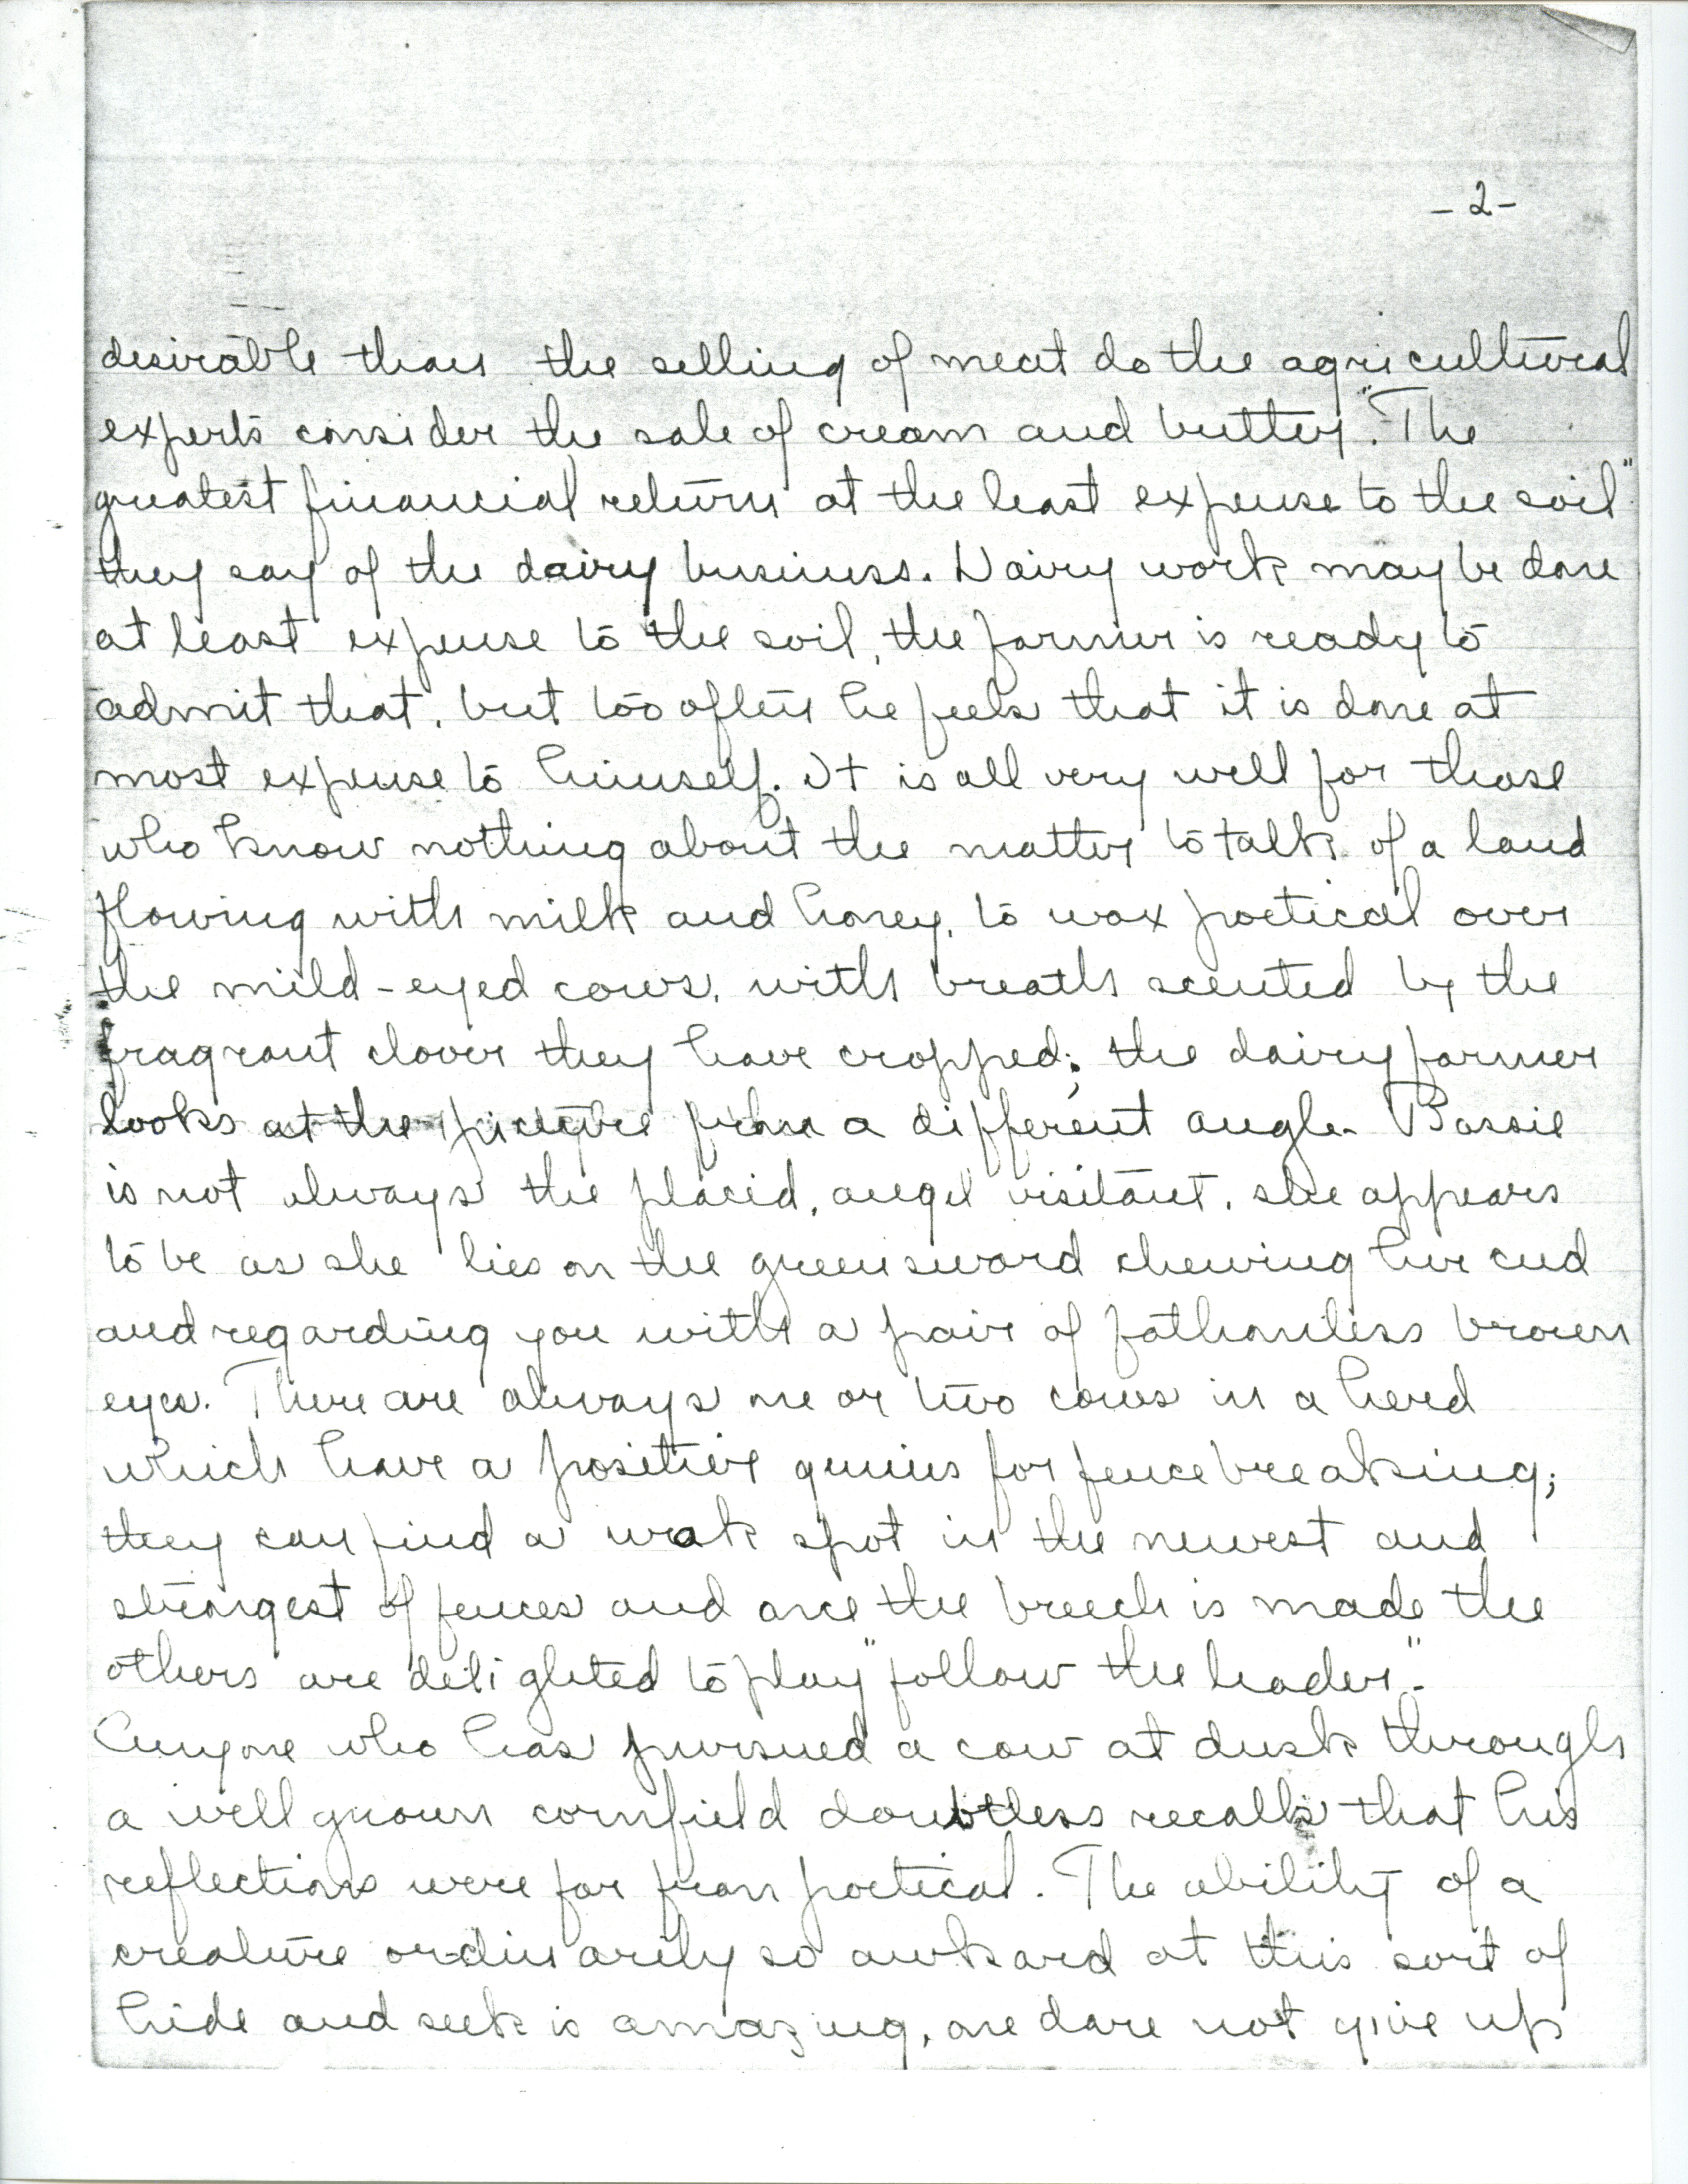 -2-
desirable than the selling of meat do the agricultural
experts consider the sale of cream and butter. "The
greatest financial return at the least expense to the soil"
they say of the dairy business. Dairy work may be done
at least expense to the soil, the farmer is ready to
admit that, but too often he feels that it is done at
most expense to himself. It is all very well for those
who know nothing about the matter to talk of a land
flowing with milk and honey, to wax poetical over
the mild-eyed cows, with breath scented by the
fragrant clover they have cropped; the dairy farmer
looks at the picture from a different angle. Bossie
is not always the placid, angel visitant, she appears
to be as she lies on the greensward chewing her cud
and regarding you with a pair of fathomless brown
eyes. There are always one or two cows in a herd
which have a positive genius for fence breaking;
they can find a weak spot in the newest and
strongest of fences and once the breech is made the
others are delighted to play "follow the leader".
Anyone who has pursued a cow at dusk through
a well grown cornfield doubtless recalls that his
reflections were far from poetical. The ability of a
creature ordinarily so awkard at this sort of
hide and seek is amazing, one dare not give up